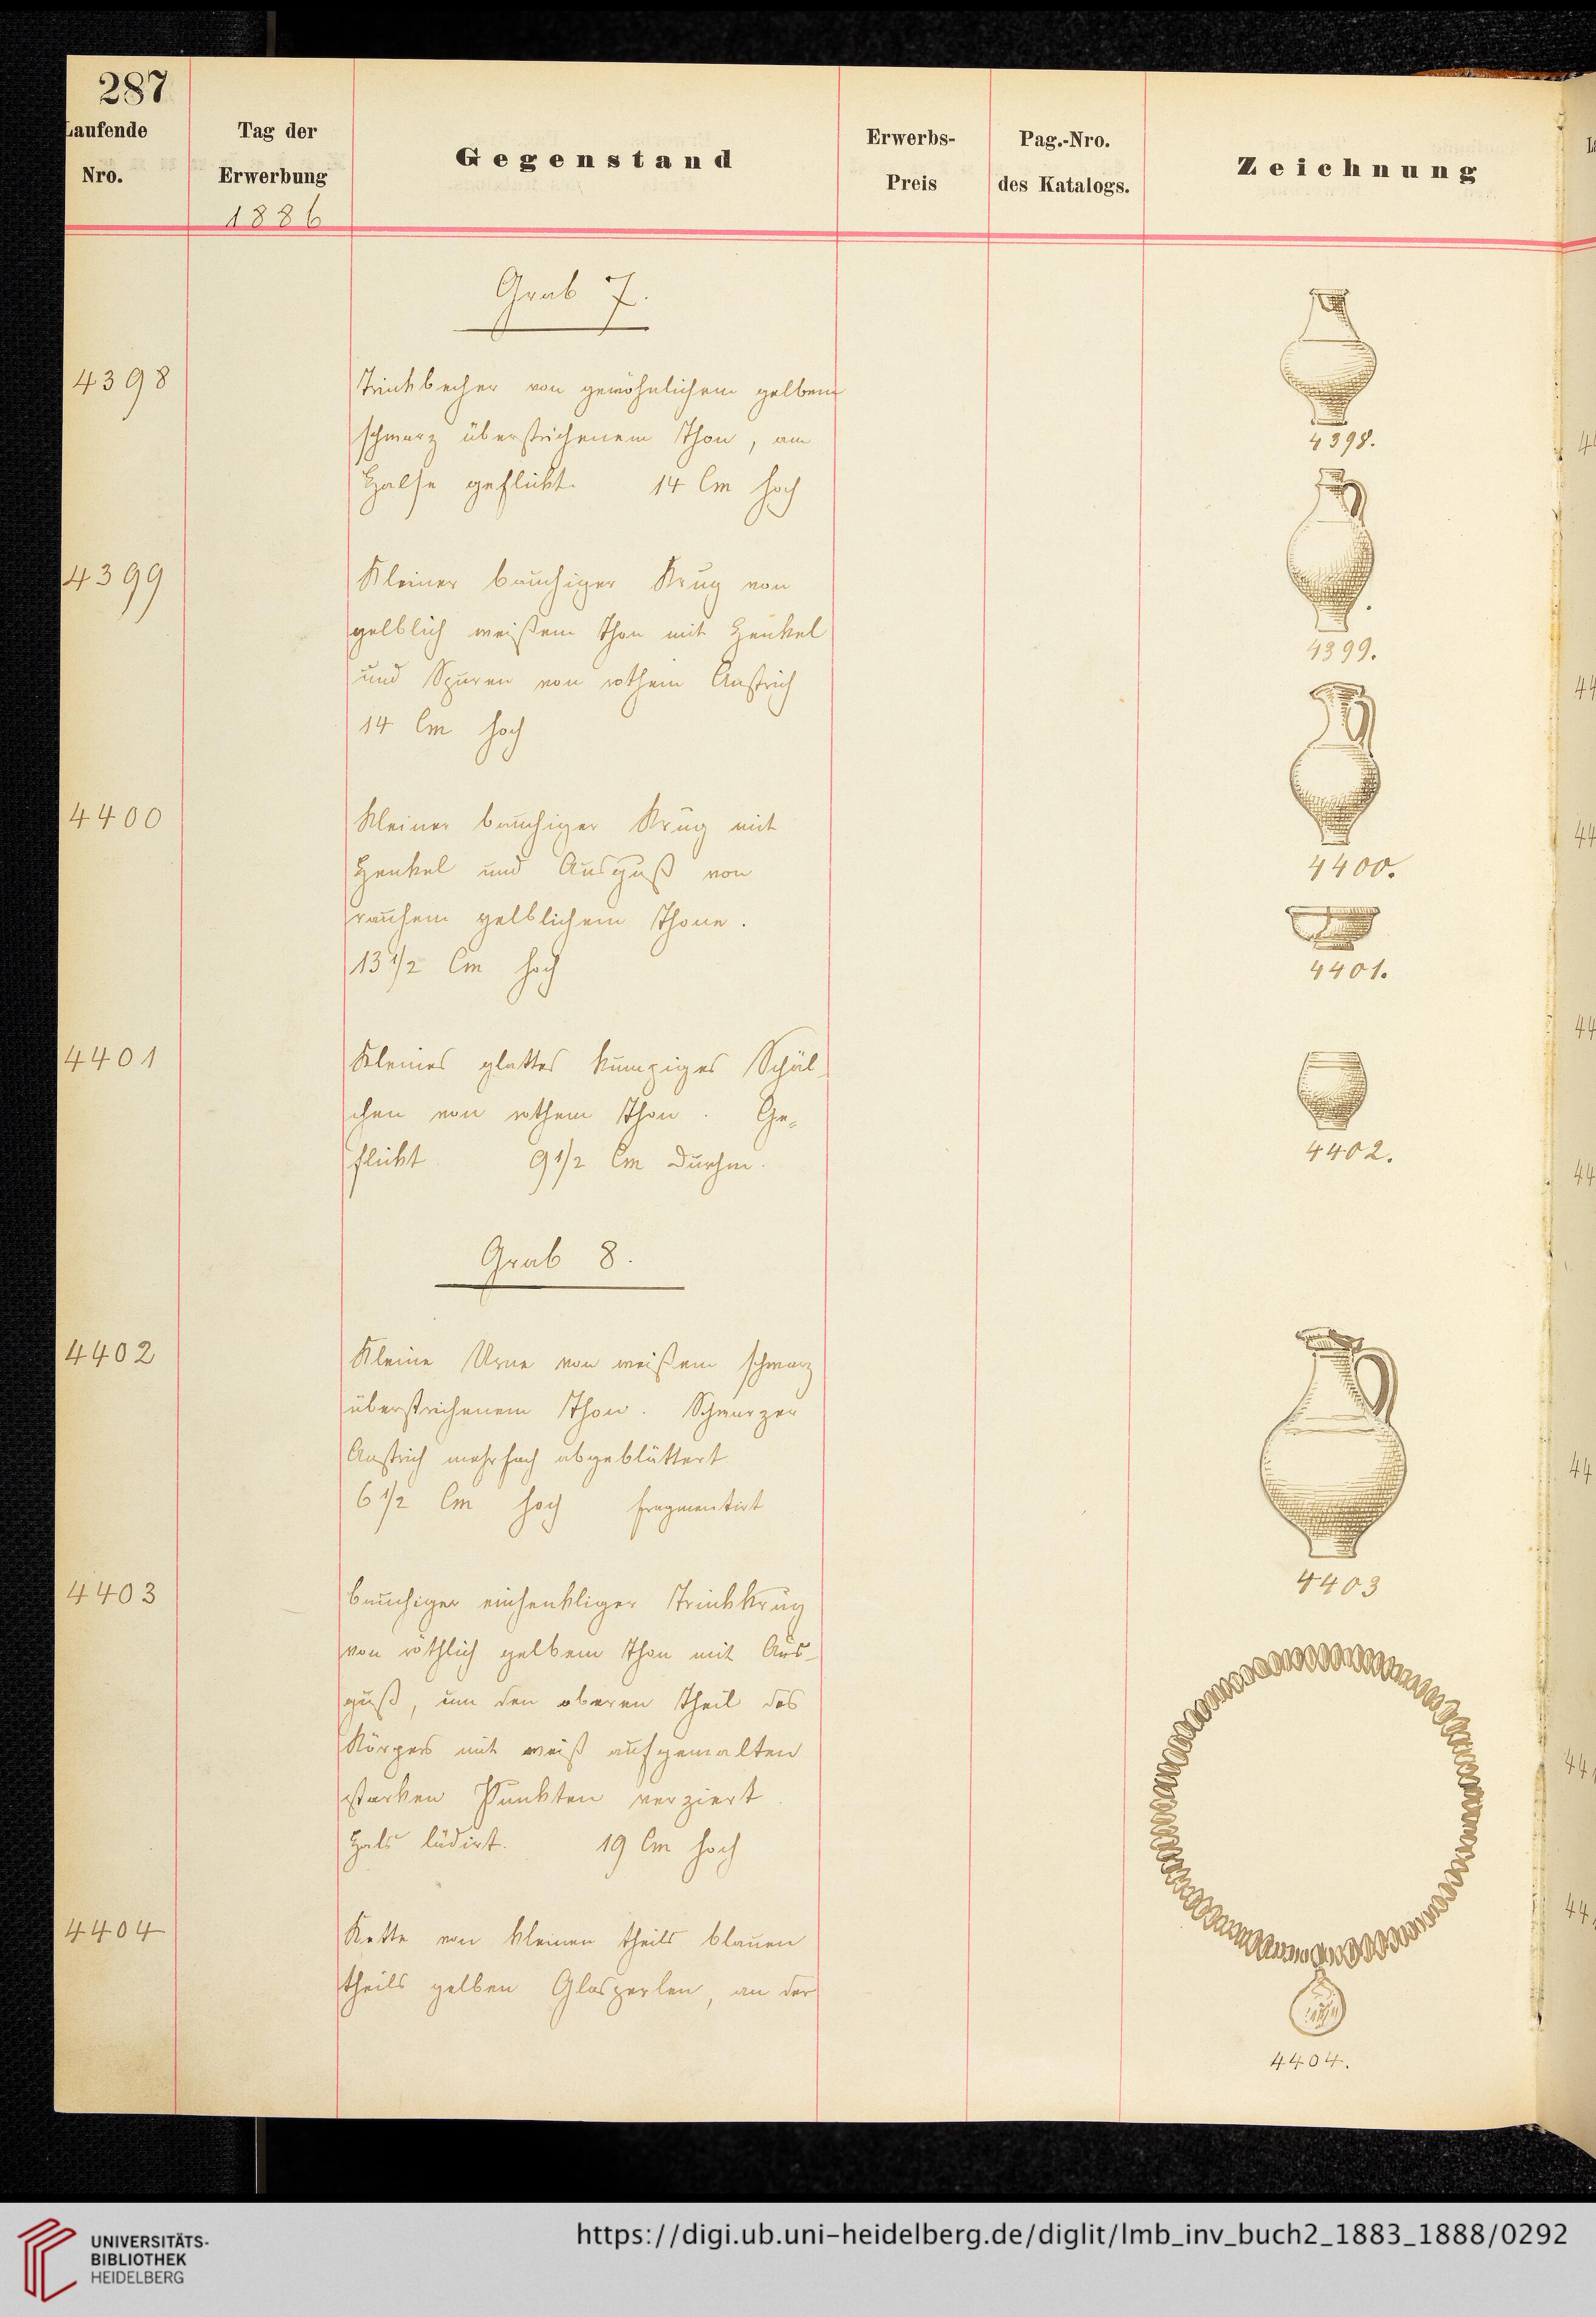 287
Laufende
Nro.
Tag der
Erwerbung
1886
Gegenstand
Erwerbs-
Preis
Pag.-Nro.
des Katalogs.
Zeichnung
Grab 7.
4398
Trinkbecher von gewöhnlichem gelbem
schwarz überstrichenem Thon, am
Halse geflickt. 14 Cm hoch
4399
Kleiner bauchiger Krug von
gelblich weißem Thon mit Henkel
und Spuren von rothem Anstrich
14 Cm hoch
4400
Kleiner bauchiger Krug mit
Henkel und Ausguß von
rauhem gelblichem Thone.
13 1/2 Cm hoch
4401
Kleines glattes kumpiges Schäl-
chen von rothem Thon. Ge-
flickt 9 1/2 Cm Durchm.
Grab 8.
4402
Kleine Urne von weißem schwarz
überstrichenem Thon. Schwarzer
Anstrich mehrfach abgeblättert
6 1/2 Cm hoch fragmentirt
4403
bauchiger einhenkliger Trinkkrug
von röthlich gelbem Thon mit Aus-
guß, um den oberen Theil des
Körpers mit weiß aufgemalten
starken Punkten verziert
Hals lädirt. 19 Cm hoch
4404
Kette von kleinen theils blauen
theils gelben Glasperlen, an der
4398.
4399.
4400.
4401.
4402.
4403
4404.
UNIVERSITÄTS-
BIBLIOTHEK
HEIDELBERG
https://digi.ub.uni-heidelberg.de/diglit/lmb_inv_buch2_1883_1888/0292